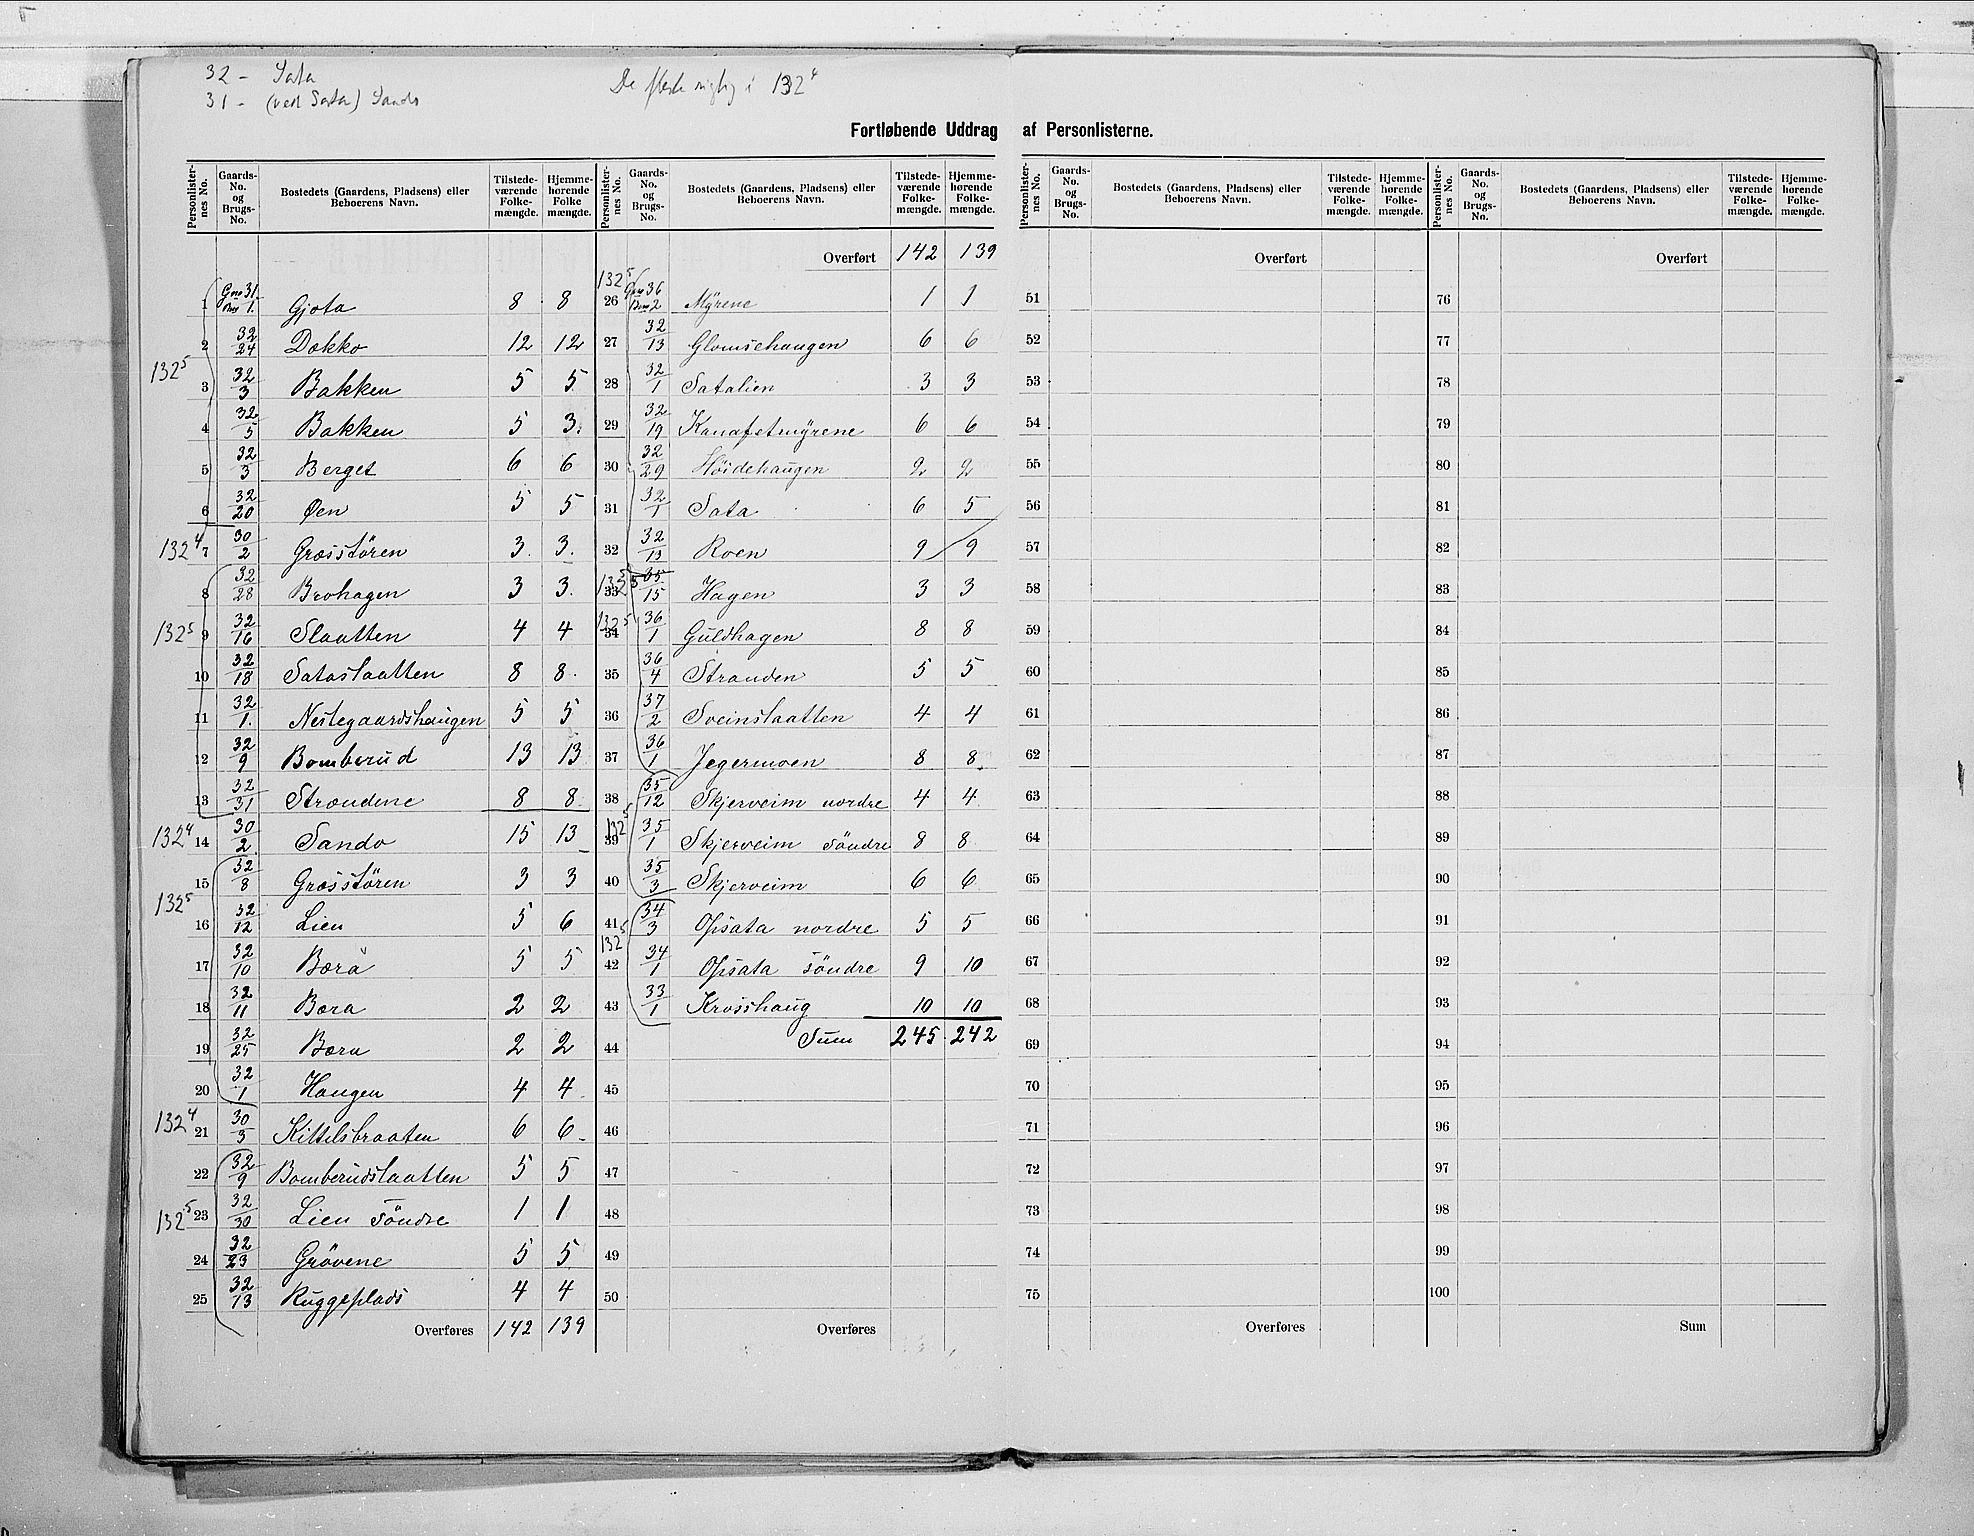 32 - Sata
31 - (ved Sata) Sando
De fleste rigtig i 132⁴
Fortløbende Uddrag af Personlisterne.
Personlister-nes No. | Gaards-No. og Brugs-No. | Bostedets (Gaardens, Pladsens) eller Beboerens Navn. | Tilstede-værende Folke-mængde. | Hjemme-hørende Folke mængde.
1 Gno 31 Bno 1. Gjota 8 8
2 32/24 Dokko 12 12
132⁵
3 32/3 Bakken 5 5
4 32/5 Bakken 5 3.
5 32/3 Berget 6 6
6 32/20 Øen 5 5
132⁴
7 30/2 Græsstören 3. 3.
8 32/28 Brohagen 3 3.
132⁵
9 32/16 Slaatten 4 4
10 32/18 Sataslaatten 8 8.
11 32/1. Nestegaardshaugen 5 5
12 32/9 Bomberud 13 13
13 32/31 Strandene 8 8
132⁴
14 30/2 Sando 15 13
15 32/8 Græsstören 3 3
132⁵
16 32/12 Lien 5 6
17 32/10 Bæra 5 5
18 32/11 Bæra 2 2
19 32/25 Bæra 2 2
20 32/1 Haugen 4 4
132⁴
21 30/3 Kittilsbraaten 6 6
22 32/9 Bomberudslaatten 5 5
132⁵
23 32/30 Lien söndre 1 1
24 32/23 Grövene 5 5
25 32/13 Ruggeplads 4 4
Overføres 142 139
Personlister-nes No. | Gaards-No. og Brugs-No. | Bostedets (Gaardens, Pladsens) eller Beboerens Navn. | Tilstede-værende Folke-mængde. | Hjemme-hørende Folke-mængde.
Overført 142 139
132⁵
26 Gno 36 Bno 2 Myrene 1 1
27 32/13 Glomsehaugen 6 6
28 32/1 Satalien 3 3
29 32/19 Kanafetmyrene 6 6
30 32/29 Höidehaugen 2 2
31 32/1 Sata 6 5
32 32/13 Roen 9 9
132⁵
33 35/15 Hagen 3 3
132⁵
34 36/1 Guldhagen 8 8
35 36/4 Stranden 5 5
36 37/2 Sveinslaatten 4 4
37 36/1 Jegermoen 8 8.
38 35/12 Skjerveim nordre 4 4
132⁵
39 35/1 Skjerveim söndre 8 8
40 35/3 Skjerveim 6 6
41 34/3 Opsata nordre 5 5
132⁵
42 34/1 Opsata söndre 9 10
43 33/1 Krosshaug 10 10
44 Sum 245 242
45
46
47
48
49
50
Overføres
Personlister-nes No. | Gaards-No. og Brugs-No. | Bostedets (Gaardens, Pladsens) eller Beboerens Navn. | Tilstede-værende Folke-mængde. | Hjemme-hørende Folke-mængde.
Overført
51
52
53
54
55
56
57
58
59
60
61
62
63
64
65
66
67
68
69
70
71
72
73
74
75
Overføres
Personlister-nes No. | Gaards-No. og Brugs-No. | Bostedets (Gaardens, Pladsens) eller Beboerens Navn. | Tilstede-værende Folke-mængde. | Hjemme-hørende Folke-mængde.
Overført
76
77
78
79
80
81
82
83
84
85
86
87
88
89
90
91
92
93
94
95
96
97
98
99
100
Sum